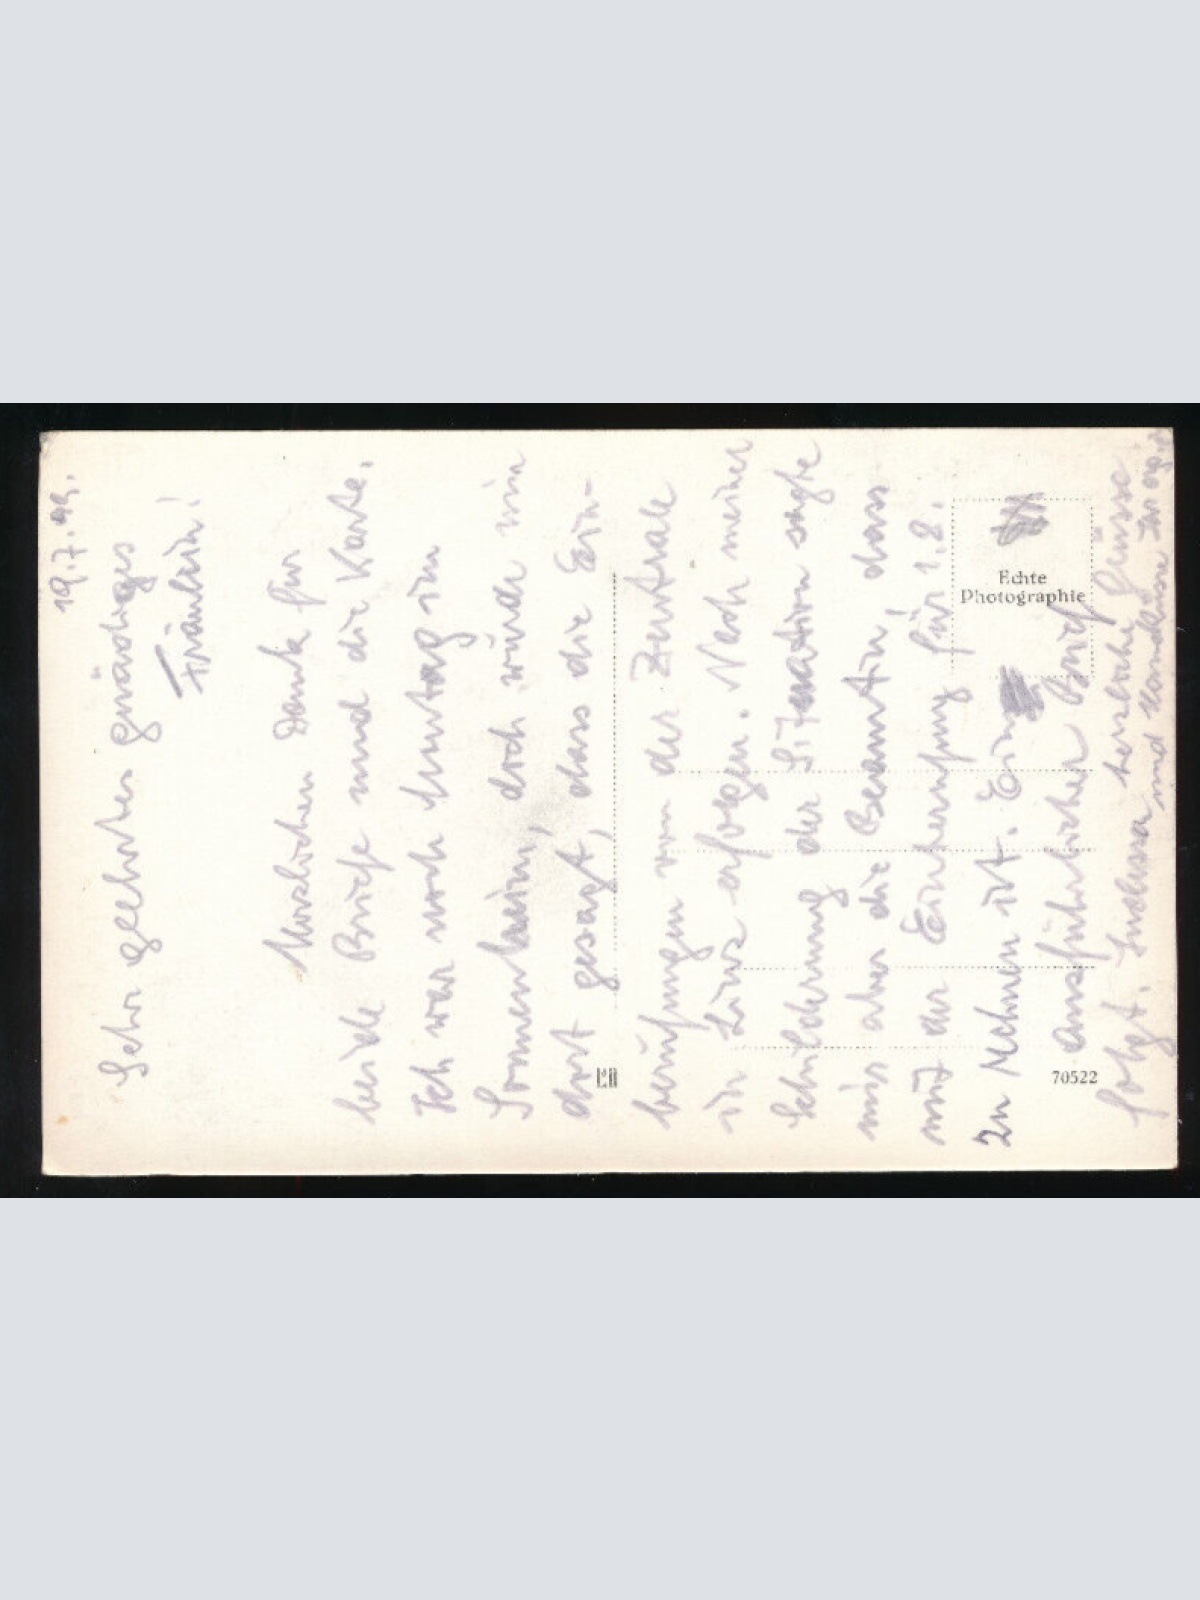 19.7.49.
Sehr geehrtes gnädiges
Fräulein!
Herzlichen Dank für
beide Briefe und die Karte.
Ich war noch heutag im
Sonnenheim, doch wurde mir
dort gesagt, dass die Ein-
berufungen von der Zentrale
in Linz erfolgen. Nach meiner
Schilderung der Situation sagte
mir aber die Beamtin, dass
mit der Einberufung für 1.8.
zu rechnen ist. Ein
ausführlicher Brief
folgt. Indessen herzliche Grüsse
und Handküsse Ihr
Echte
Photographie
70522